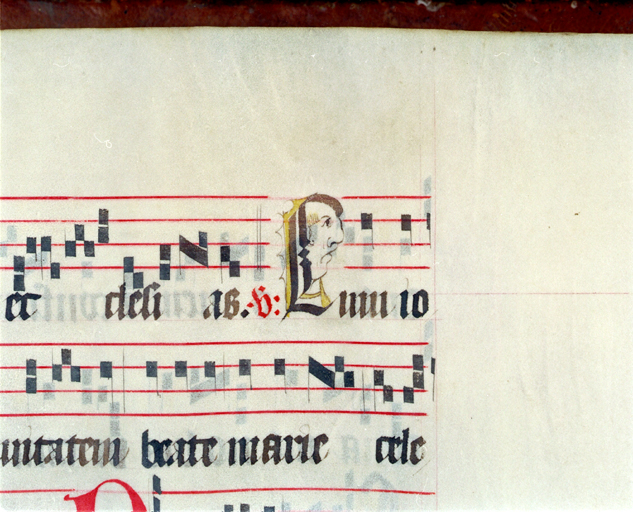 ec clesi as. ℣: Cum io
uitatem beate marie cele